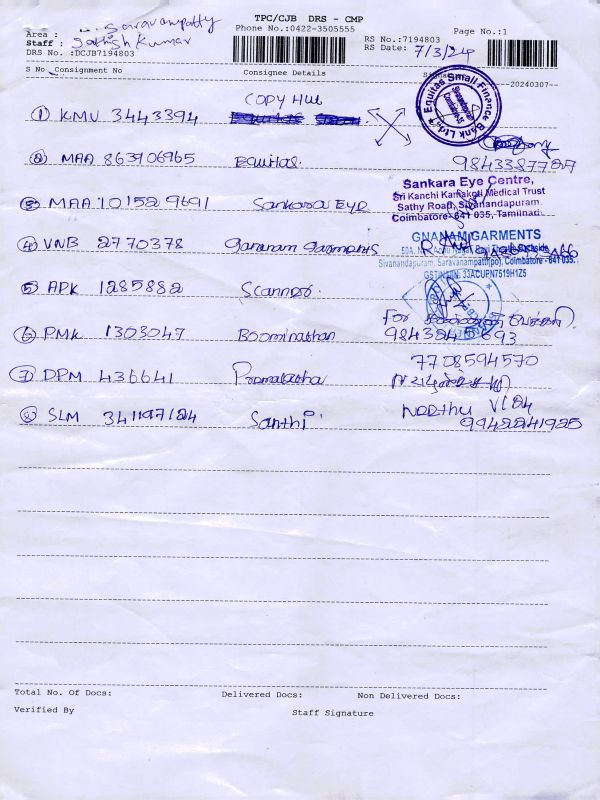 TPC/CJB DRS - CMP
Area : Saravanampatty
Phone No.:0422-3505555
RS No.:7194803
Page No.:1
Staff : Sathish Kumar
RS Date: 7/3/24
DRS No. :DCJB7194803
S No Consignment No Consignee Details
--20240307--
① KMU 3443394 COPY HUB
Equitas Small Finance Bank Ltd.
② MAA 863906965 Equitas.
③ MAA 101529691 Sankara Eye
Sankara Eye Centre,
Sri Kanchi Kamakoti Medical Trust
Sathy Road, Sivanandapuram
Coimbatore- 641 035, Tamilnadu
④ VNB 2770378 Gananam Garments
GNANAM GARMENTS
Sivanandapuram, Saravanampatti(po), Coimbatore - 641 035.
GSTIN/UIN: 33ACUPN7519H1Z5
⑤ APK 1285882 Scanner.
⑥ PMK 1303047 Boominathan
For
7708594570
⑦ DPM 436641 Premalatha
⑧ SLM 341197124 Santhi
9942241925
Total No. Of Docs: Delivered Docs: Non Delivered Docs:
Verified By Staff Signature